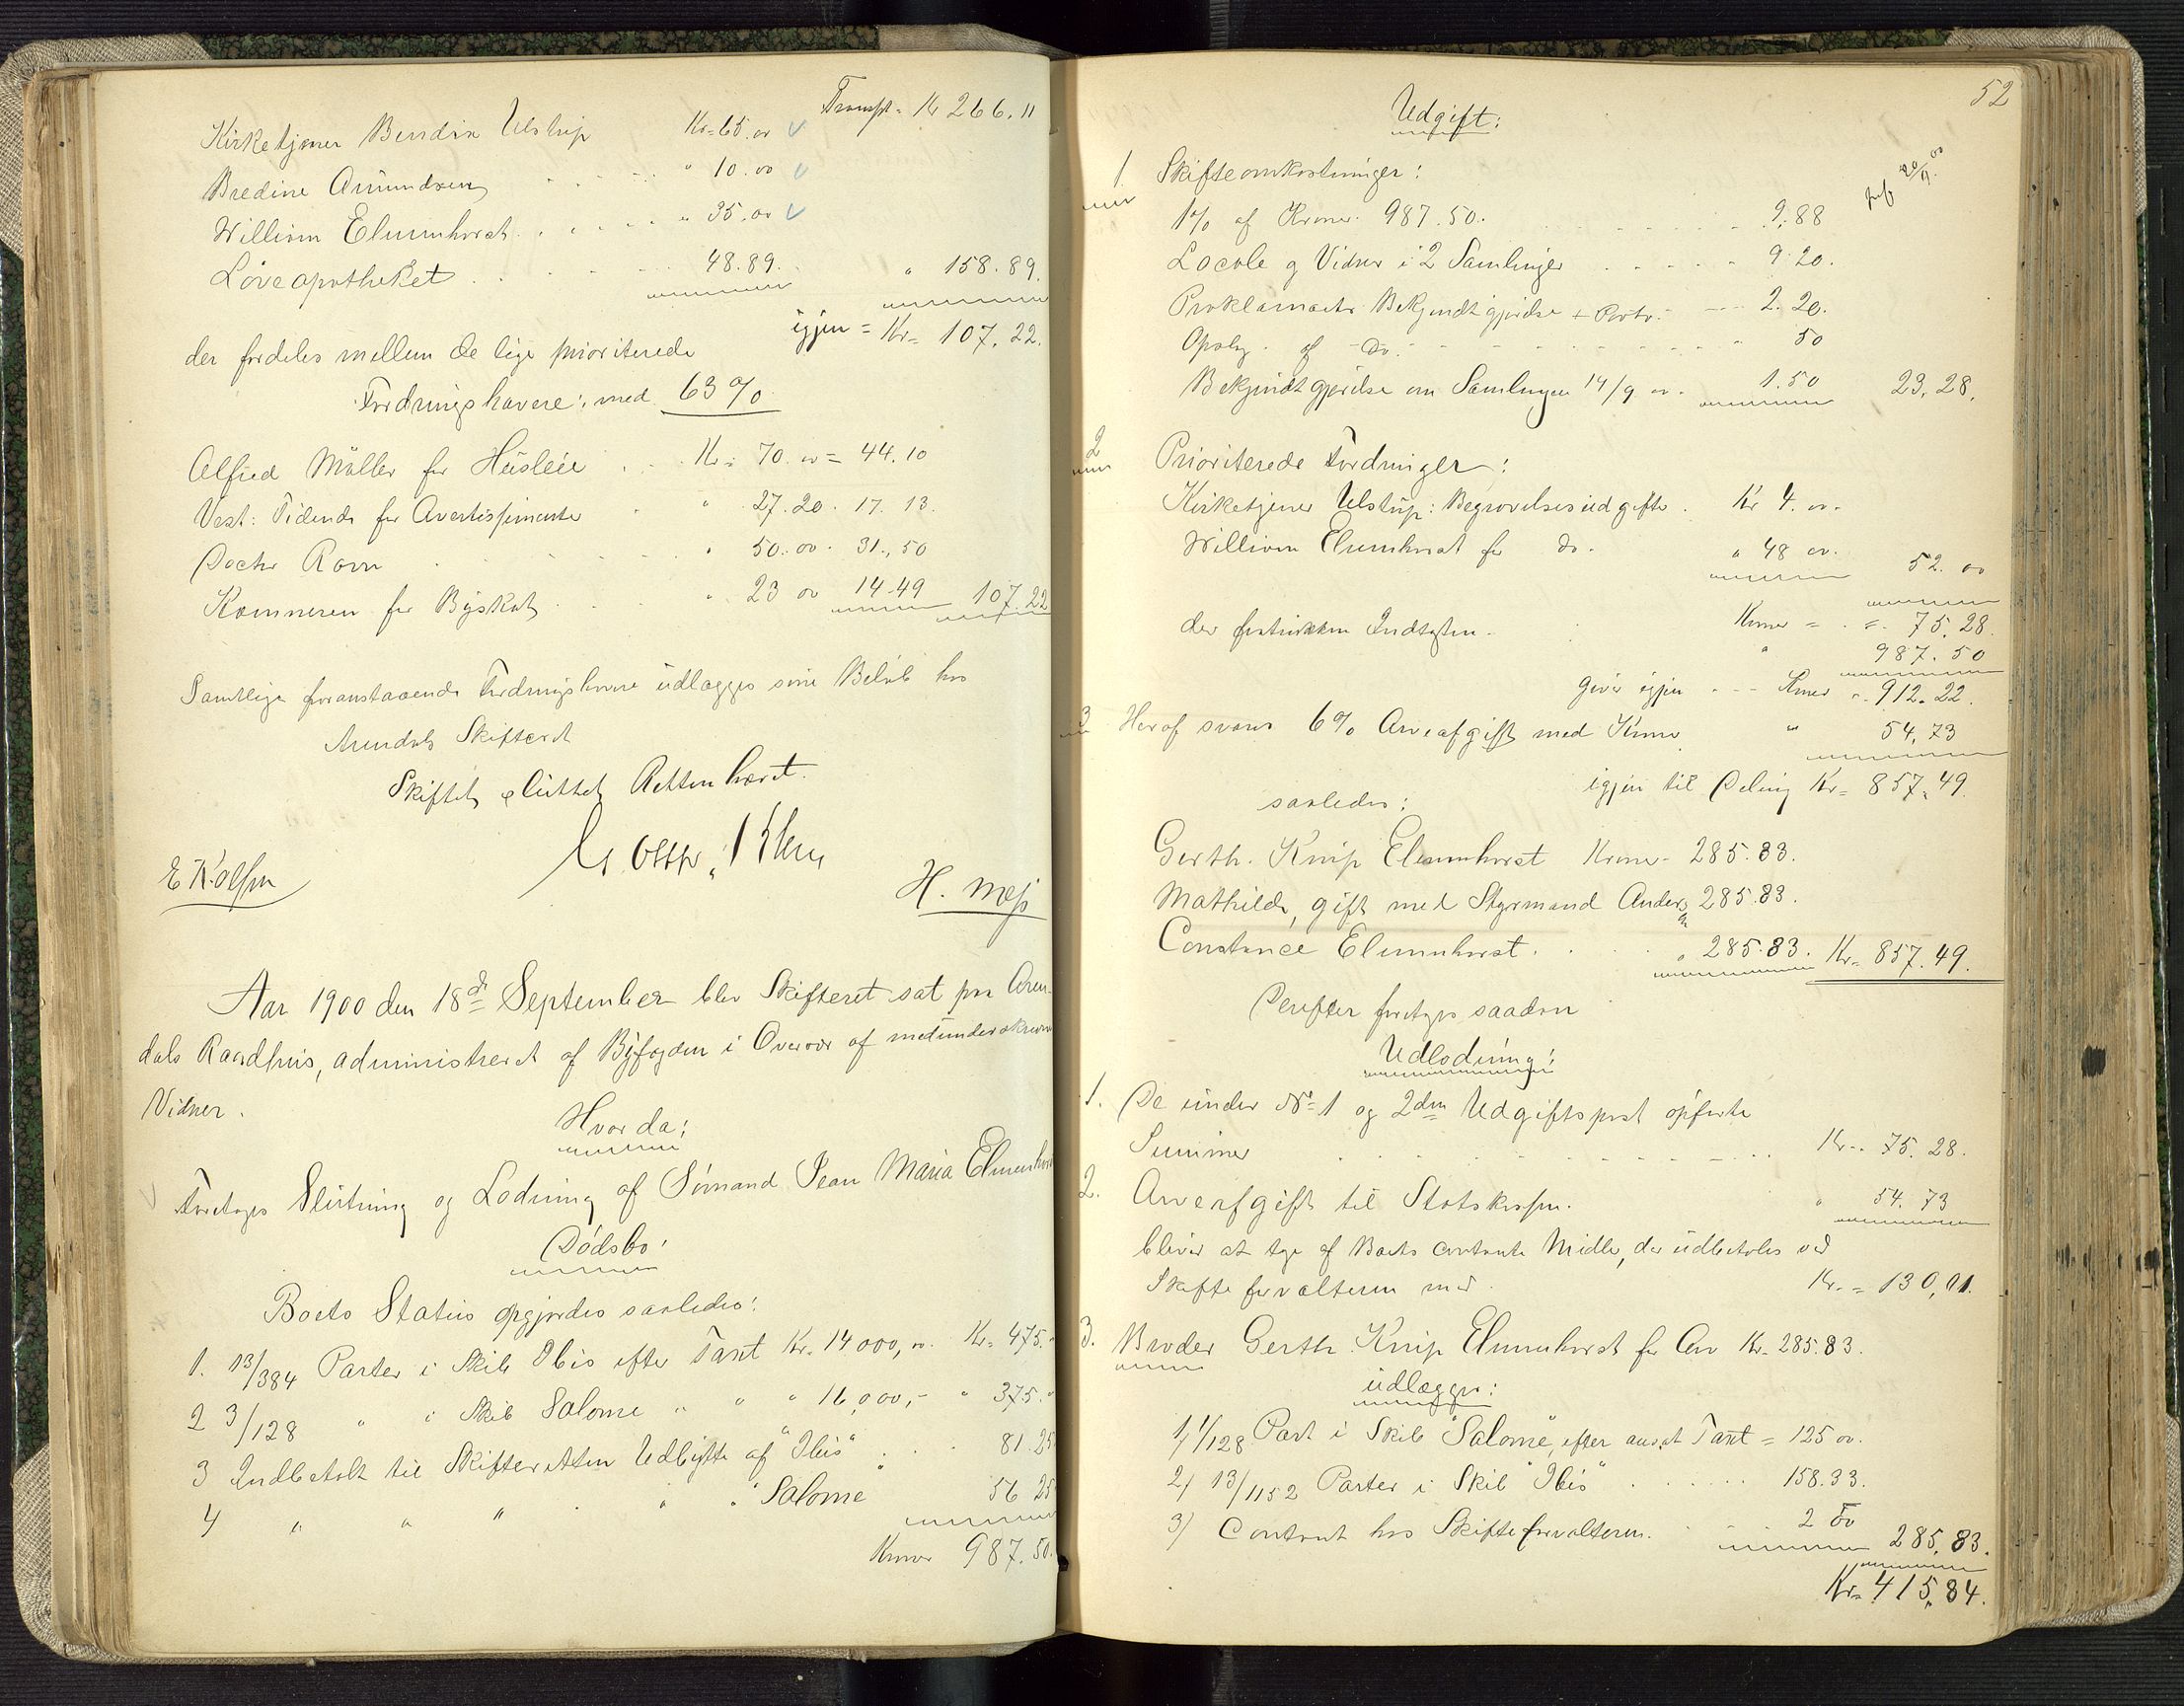 Transpt. Kr 266.11
Kirketjener Bendix Ulstrup Kr. 65.00
Bredine Amundsen " 10.00
William Elummhorst " 35.00
Løveapotheket 48.89. " 158.89.
igjen = Kr. 107.22.
der fordeles mellem de lige prioriterede
Fordringshavere: med 63%
Alfred Møller for Husleie Kr. 70.00 = 44.10
Vest: Tidende for Avertissimenter " 27.20. 17.13.
Doctor Ravn " 50.00. 31.50
Kæmneren for Byskat " 23 00 14.49 107.22
Samtlige foranstaaende Fordringshavere udlægges sine Beløb hos
Arendals Skifteret
Skiftet sluttet Retten hævet.
E K. Olsen
H. Moss
Aar 1900 den 18de September blev Skifteret sat paa Aren-
dals Raadhus, administreret af Byfogden i Overvær af medunderskrevne
Vidner.
Hvorda:
Foretoges Slutning og Lodning af Sømand Jean Maria Elummhorst
Dødsbo:
Boets Status opgjordes saaledes:
1. 13/384 Parter i Skib Ibis efter Taxt Kr. 14000,00. Kr. 475.
2 3/128 " i Skib Salome " " " 16,000,- " 375.
3 Indbetalt til Skifteretten Udbytte af "Ibis" 81.25
4 " " " " " "Salome" 56 25
Kroner 987.50.
52
Udgift:
20/9.00
1. Skifteomkostninger:
1% af Kroner 987.50. 9.88
Locale og Vidner i 2 Samlinger 9.20.
Proklamaets Bekjendtgjørelse + Porto. 2.20.
Opslag. af do. 50
Bekjendtgjørelse om Samlingen 14/9 00. 1.50 23,28.
2 Prioriterede Fordringer:
Kirketjener Ulstrup: Begravelsesudgifter. Kr 4.00.
William Elummhorst for do. " 48 00. 52.00
Kroner = 75.28.
der fratrukken Indtægten. " 987.50
giver igjen Kroner 912.22.
3 Heraf svares 6% Arveafgift med Kroner " 54,73
igjen til Deling Kr= 857,49.
saaledes:
Gerth. Knip Elummhorst Kroner 285.83.
Mathilde, gift med Styrmand Anders 285.83.
Constance Elummhorst. " 285.83. Kr. 857.49.
Derefter foretoges saadan
Udlodning:
1. De under No 1 og 2den Udgiftspost opførte
Summer Kr. 75.28.
2. Arveafgift til Statskassen. " 54.73
bliver at tage af Boets contante Midler, der udbetales ved
Skifteforvalteren med Kr. = 130,01.
3. Broder Gerth. Knip Elummhorst for Arv Kr. 285.83.
udlægges:
1, 1/128 Part i Skib "Salome", efter ansat Taxt = 125 00.
2/ 13/1152 Parter i Skib "Ibis" 158.33.
3/ Contant hos Skifteforvalteren. 2 50 285,83.
Kr. 415,84.